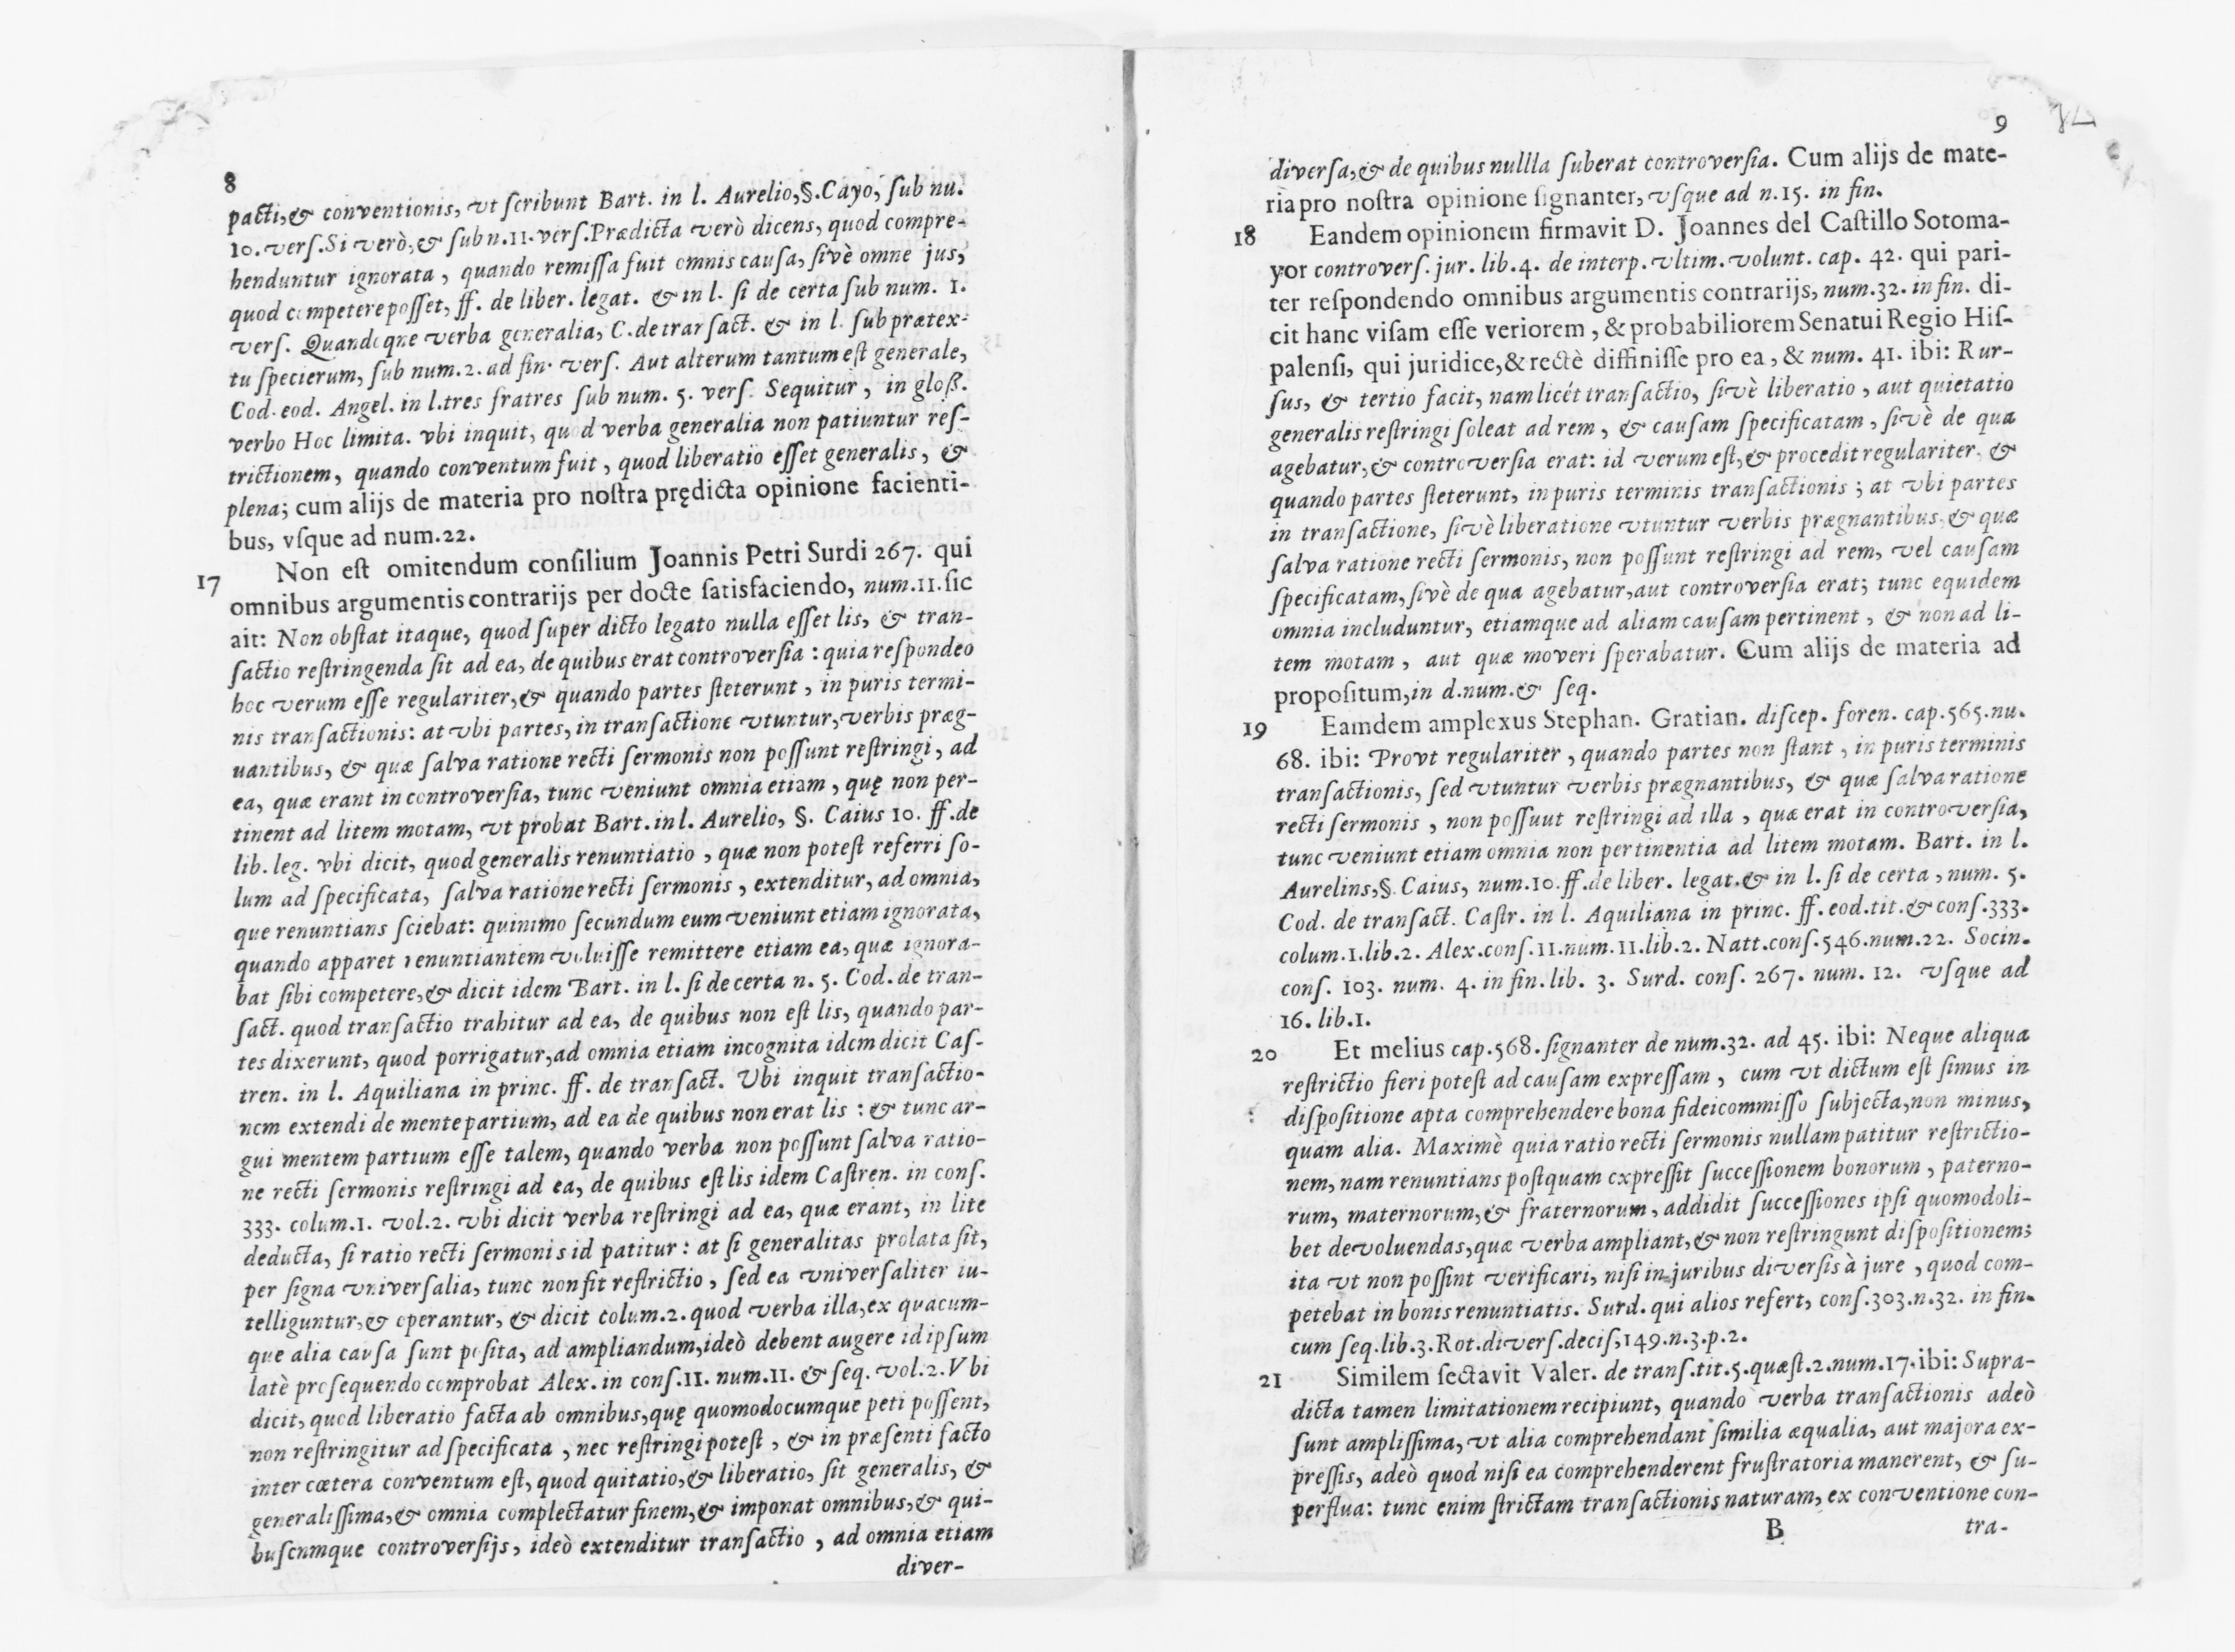 8
pacti,& conventionis, vt ſcribunt Bart. in l. Aurelio,§.Cayo, ſub nu.
10. verſ.Si verò,& ſub n.11.verſ.Prædicta verò dicens, quod compre-
henduntur ignorata, quando remiſſa fuit omnis cauſa, ſivè omne jus,
quod competere poſſet, ff. de liber. legat. & in l. ſi de certa ſub num. 1.
verſ. Quandoque verba generalia, C.de tranſact. & in l. ſub prætex-
tu ſpecierum, ſub num.2. ad fin. verſ. Aut alterum tantum eſt generale,
Cod. eod. Angel. in l.tres fratres ſub num. 5. verſ. Sequitur, in gloß.
verbo Hoc limita. vbi inquit, quod verba generalia non patiuntur reſ-
trictionem, quando conventum fuit, quod liberatio eſſet generalis, &
plena; cum alijs de materia pro noſtra prędicta opinione facienti-
bus, vſque ad num.22.
17 Non eſt omitendum conſilium Joannis Petri Surdi 267. qui
omnibus argumentis contrarijs per docte ſatisfaciendo, num.11.ſic
ait: Non obſtat itaque, quod ſuper dicto legato nulla eſſet lis, & tran-
ſactio reſtringenda ſit ad ea, de quibus erat controverſia : quia reſpondeo
hoc verum eſſe regulariter,& quando partes ſteterunt, in puris termi-
nis tranſactionis: at vbi partes, in tranſactione vtuntur, verbis præg-
uantibus, & quæ ſalva ratione recti ſermonis non poſſunt reſtringi, ad
ea, quæ erant in controverſia, tunc veniunt omnia etiam, quę non per-
tinent ad litem motam, vt probat Bart. in l. Aurelio, §. Caius 10. ff.de
lib. leg. vbi dicit, quod generalis renuntiatio, quæ non poteſt referri ſo-
lum ad ſpecificata, ſalva ratione recti ſermonis, extenditur, ad omnia,
que renuntians ſciebat: quinimo ſecundum eum veniunt etiam ignorata,
quando apparet renuntiantem voluiſſe remittere etiam ea, quæ ignora-
bat ſibi competere,& dicit idem Bart. in l. ſi de certa n. 5. Cod. de tran-
ſact. quod tranſactio trahitur ad ea, de quibus non eſt lis, quando par-
tes dixerunt, quod porrigatur,ad omnia etiam incognita idem dicit Caſ-
tren. in l. Aquiliana in princ. ff. de tranſact. Ubi inquit tranſactio-
nem extendi de mente partium, ad ea de quibus non erat lis : & tunc ar-
gui mentem partium eſſe talem, quando verba non poſſunt ſalva ratio-
ne recti ſermonis reſtringi ad ea, de quibus eſt lis idem Caſtren. in conſ.
333. colum.1. vol.2. vbi dicit verba reſtringi ad ea, quæ erant, in lite
deducta, ſi ratio recti ſermonis id patitur : at ſi generalitas prolata ſit,
per ſigna vniverſalia, tunc non fit reſtrictio, ſed ea vniverſaliter iu-
telliguntur,& operantur, & dicit colum.2. quod verba illa,ex quacum-
que alia cauſa ſunt poſita, ad ampliandum,ideò debent augere id ipſum
latè proſequendo comprobat Alex. in conſ.11. num.11. & ſeq. vol.2. Vbi
dicit, quod liberatio facta ab omnibus,quę quomodocumque peti poſſent,
non reſtringitur ad ſpecificata, nec reſtringi poteſt, & in præſenti facto
inter cœtera conventum eſt, quod quitatio,& liberatio, ſit generalis, &
generaliſſima,& omnia complectatur finem,& imponat omnibus,& qui-
buſcnmque controverſijs, ideò extenditur tranſactio, ad omnia etiam
diver-
9
diverſa,& de quibus nullla ſuberat controverſia. Cum alijs de mate-
ria pro noſtra opinione ſignanter, vſque ad n.15. in fin.
18 Eandem opinionem firmavit D. Joannes del Caſtillo Sotoma-
yor controverſ. jur. lib.4. de interp. vltim. volunt. cap. 42. qui pari-
ter reſpondendo omnibus argumentis contrarijs, num.32. in fin. di-
cit hanc viſam eſſe veriorem, & probabiliorem Senatui Regio Hiſ-
palenſi, qui juridice,& rectè diffiniſſe pro ea, & num. 41. ibi: Rur-
ſus, & tertio facit, nam licét tranſactio, ſivè liberatio, aut quietatio
generalis reſtringi ſoleat ad rem, & cauſam ſpecificatam, ſivè de qua
agebatur,& controverſia erat: id verum eſt,& procedit regulariter, &
quando partes ſteterunt, in puris terminis tranſactionis ; at vbi partes
in tranſactione, ſivè liberatione vtuntur verbis prægnantibus, & quæ
ſalva ratione recti ſermonis, non poſſunt reſtringi ad rem, vel cauſam
ſpecificatam, ſivè de qua agebatur,aut controverſia erat; tunc equidem
omnia includuntur, etiamque ad aliam cauſam pertinent, & non ad li-
tem motam, aut quæ moveri ſperabatur. Cum alijs de materia ad
propoſitum,in d.num.& ſeq.
19 Eamdem amplexus Stephan. Gratian. diſcep. foren. cap.565.nu.
68. ibi: Provt regulariter, quando partes non ſtant, in puris terminis
tranſactionis, ſed vtuntur verbis prægnantibus, & quæ ſalva ratione
recti ſermonis, non poſſuut reſtringi ad illa, quæ erat in controverſia,
tunc veniunt etiam omnia non pertinentia ad litem motam. Bart. in l.
Aurelins,§. Caius, num.10. ff.de liber. legat.& in l. ſi de certa, num. 5.
Cod. de tranſact. Caſtr. in l. Aquiliana in princ. ff. eod.tit.& conſ.333.
colum.1.lib.2. Alex.conſ.11.num.11.lib.2. Natt.conſ.546.num.22. Socin.
conſ. 103. num. 4. in fin. lib. 3. Surd. conſ. 267. num. 12. vſque ad
16. lib.1.
20 Et melius cap.568. ſignanter de num.32. ad 45. ibi: Neque aliqua
reſtrictio fieri poteſt ad cauſam expreſſam, cum vt dictum eſt ſimus in
diſpoſitione apta comprehendere bona fideicommiſſo ſubjecta,non minus,
quam alia. Maximè quia ratio recti ſermonis nullam patitur reſtrictio-
nem, nam renuntians poſtquam expreſſit ſucceſſionem bonorum, paterno-
rum, maternorum,& fraternorum, addidit ſucceſſiones ipſi quomodoli-
bet devoluendas,quæ verba ampliant,& non reſtringunt diſpoſitionem;
ita vt non poſſint verificari, niſi in juribus diverſis à jure, quod com-
petebat in bonis renuntiatis. Surd. qui alios refert, conſ.303.n.32. in fin.
cum ſeq.lib.3.Rot.diverſ.deciſ,149.n.3.p.2.
21 Similem ſectavit Valer. de tranſ.tit.5.quæſt.2.num.17.ibi: Supra-
dicta tamen limitationem recipiunt, quando verba tranſactionis adeò
ſunt ampliſſima, vt alia comprehendant ſimilia æqualia, aut majora ex-
preſſis, adeò quod niſi ea comprehenderent fruſtratoria manerent, & ſu-
perflua: tunc enim ſtrictam tranſactionis naturam, ex conventione con-
B tra-